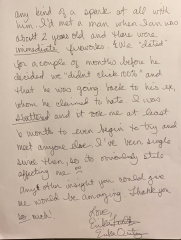 any kind of a spark at all with
him. I'd met a man when Ian was
about 2 years old and there were
immediate fireworks. We "dated"
for a couple of months before he
decided we "didn't click 100%" and
that he was going back to his ex,
whom he claimed to hate. I was
shattered and it took me at least
6 months to even begin to try and
meet anyone else. I've been single
since then, so its obviously still
affecting me.
Any other insight you could give
me would be amazing. Thank you
so much!
Love,